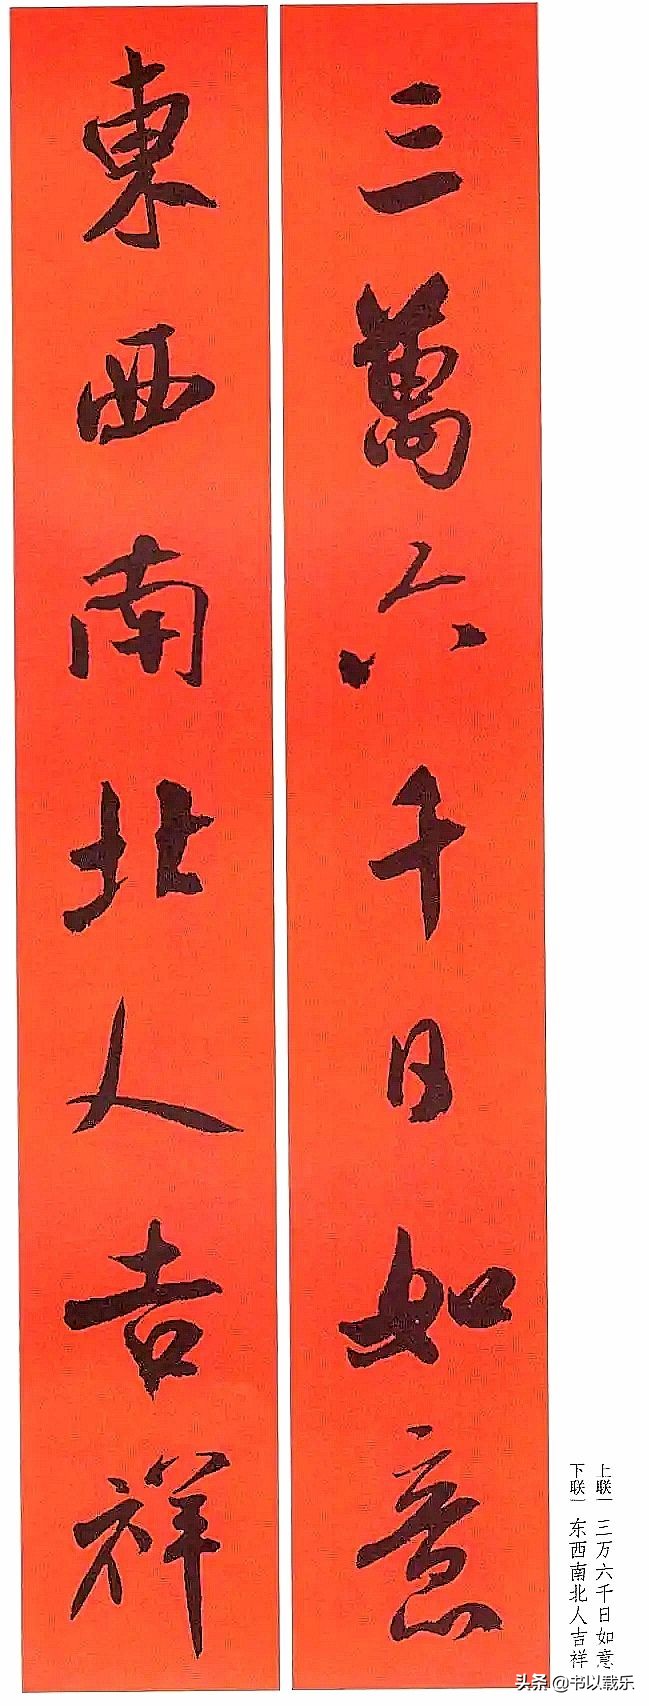 三萬六千日如意
東西南北人吉祥
上联｜三万六千日如意
下联｜东西南北人吉祥
头条 @书以载乐